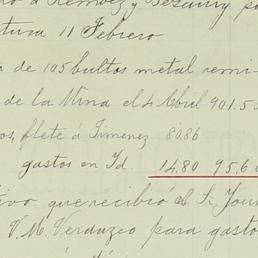 ó Remdez y Bezaury po
tura 11 Febrero
a de 105 bultos metal remi-
de la Mina el 4 Abril 901.5
os, flete á Jimenez 80.86
gastos en Id. 14.80 95.6
ivo que recibió el Sr. Jour
V. M. Verduzco para gasto